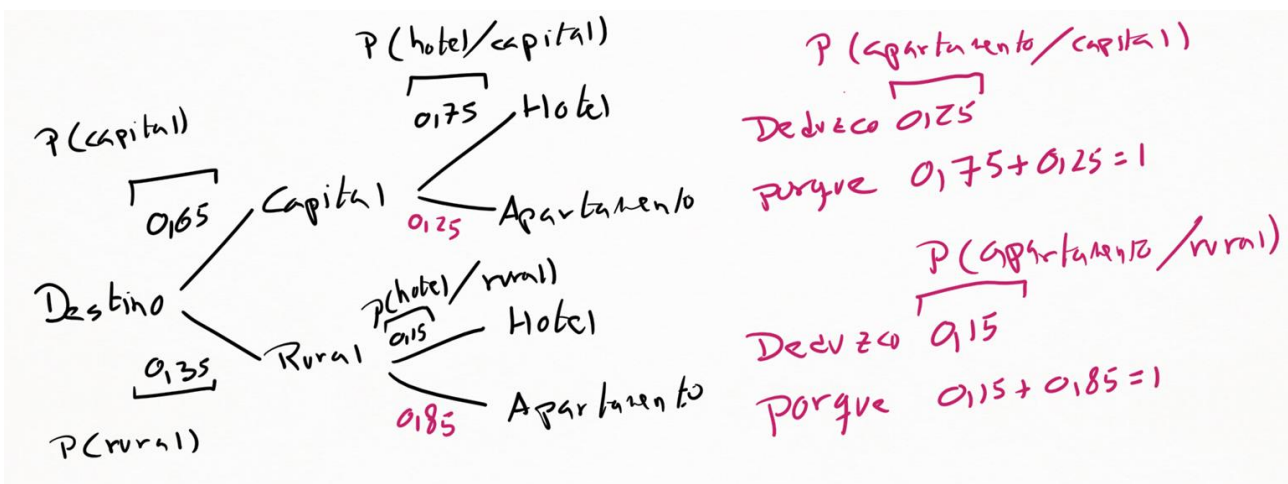 P(hotel/capital)
0,75
Hotel
P(capital)
0,65
Capital
0,25
Apartamento
Destino
P(hotel/rural)
0,15
Hotel
0,35
Rural
P(rural)
0,85
Apartamento
P(apartamento/capital)
Deduzco 0,25
porque 0,75+0,25=1
P(apartamento/rural)
Deduzco 0,15
porque 0,15+0,85=1